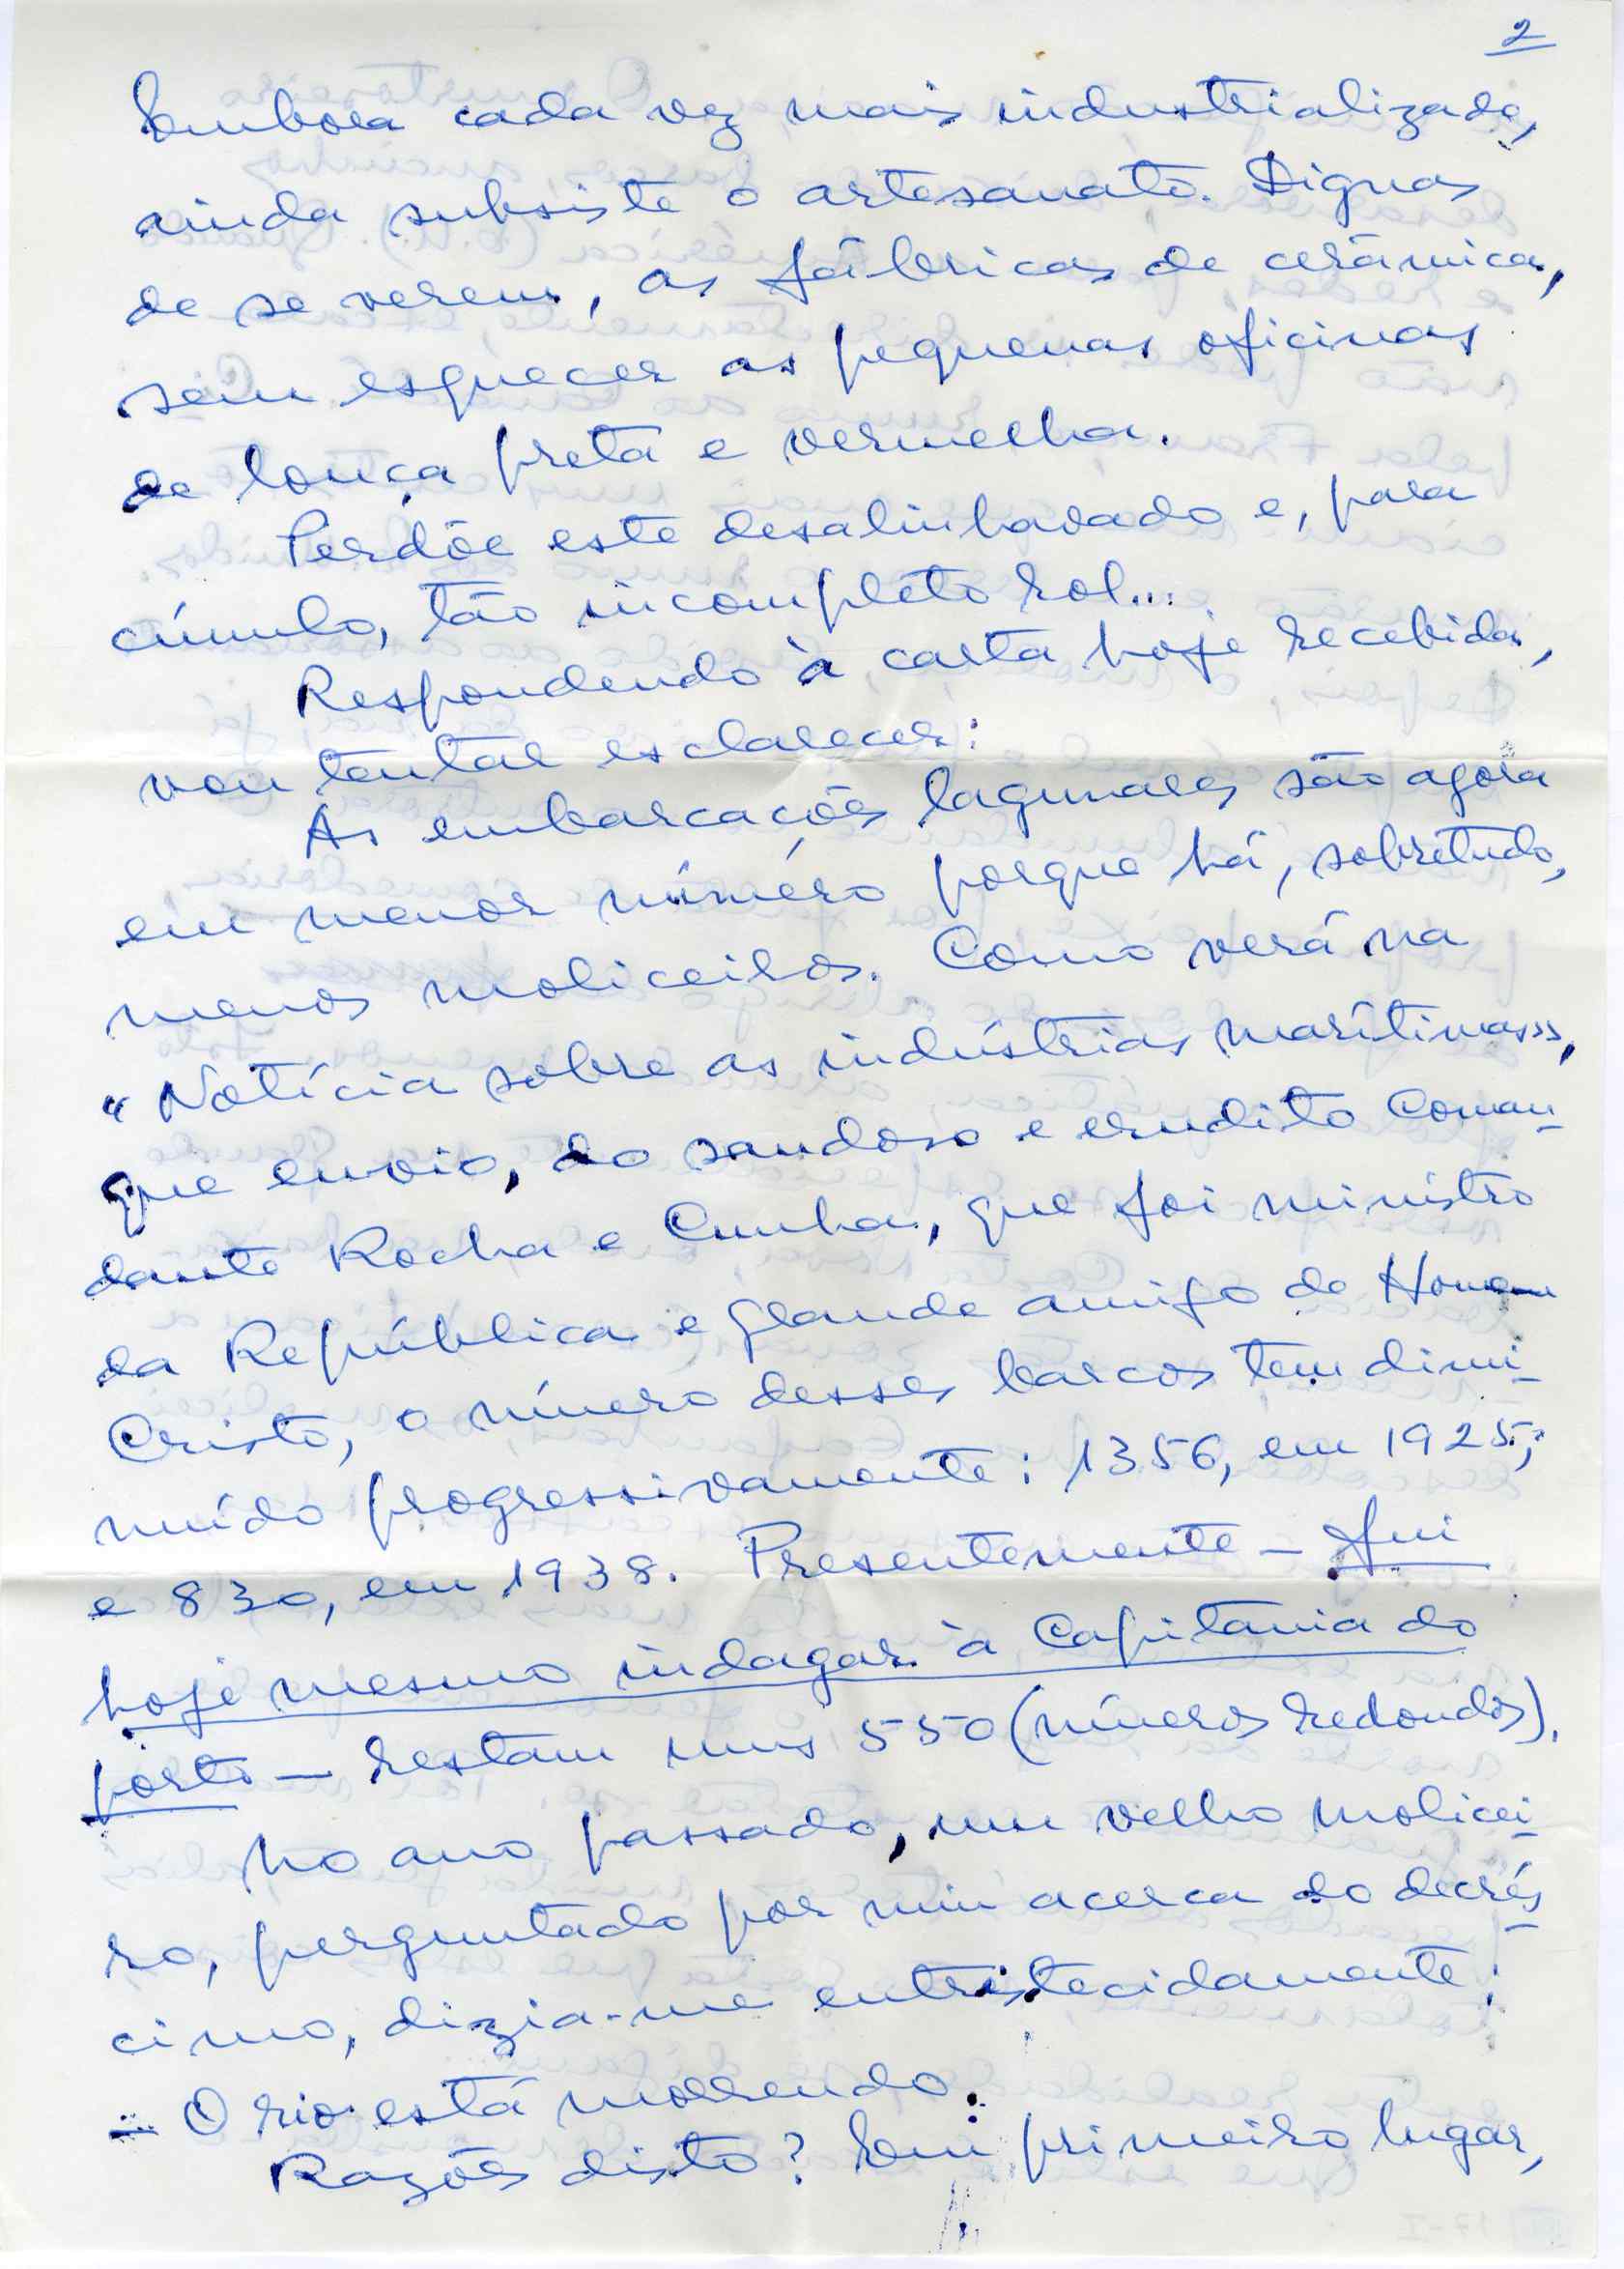 2
Embora cada vez mais industrializada,
ainda subsiste o artesanato. Dignas
de se verem, as fábricas de cerâmica,
sem esquecer as pequenas oficinas
de louça preta e vermelha.
Perdôe este desalinhavado e, para
cúmulo, tão incompleto rol...
Respondendo à carta hoje recebida,
vou tentar esclarecer:
As embarcações lagunares são agora
em menor número porque há, sobretudo,
menos moliceiros. Como verá na
"Notícia sobre as indústrias marítimas",
que envio, do saudoso e erudito Coman-
dante Rocha e Cunha, que foi ministro
da República e grande amigo de Homem
Cristo, o número desses barcos tem dimi-
nuído progressivamente: 1356, em 1925;
e 830, em 1938. Presentemente — fui
hoje mesmo indagar à Capitania do
porto — restam uns 550 (números redondos).
No ano passado, um velho molicei-
ro, perguntado por mim acerca do decrés-
cimo, dizia-me entristecidamente:
— O rio está morrendo.
Razões disto? Em primeiro lugar,